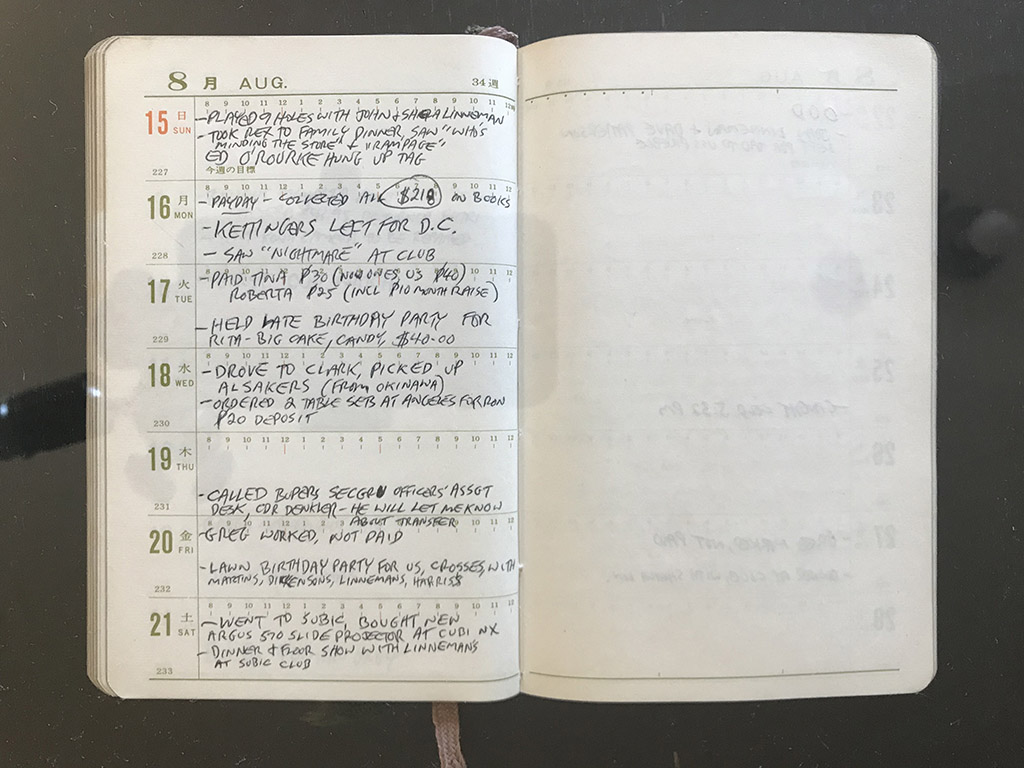 8 月 AUG. 34週
15 日 SUN
-PLAYED 9 HOLES WITH JOHN & SHEILA LINNEMAN
-TOOK REX TO FAMILY DINNER, SAW "WHO'S
MINDING THE STORE" & "RAMPAGE"
ED O'ROURKE HUNG UP TAG
227 今週の目標
16 月 MON
-PAYDAY- COLLECTED ALL $218 ON BOOKS
-KETTINGERS LEFT FOR D.C.
228
- SAW "NIGHTMARE" AT CLUB
17 火 TUE
-PAID TINA $30 (NOW OWES US $40)
ROBERTA $25 (INCL $10 MONTH RAISE)
-HELD LATE BIRTHDAY PARTY FOR
229
RITA-BIG CAKE, CANDY, $40.00
18 水 WED
-DROVE TO CLARK, PICKED UP
ALSAKERS (FROM OKINAWA)
-ORDERED 2 TABLE SETS AT ANGELES FOR RON
230
$20 DEPOSIT
19 木 THU
-CALLED BUPERS SECGRU OFFICERS' ASSGT
231
DESK, CDR DENKLER- HE WILL LET ME KNOW
ABOUT TRANSFER
20 金 FRI
-GREG WORKED, NOT PAID
-LAWN BIRTHDAY PARTY FOR US, CROSSES, WITH
232
MARTINS, DICKENSONS, LINNEMANS, HARRISS
21 土 SAT
-WENT TO SUBIC, BOUGHT NEW
ARGUS 570 SLIDE PROJECTOR AT CUBI NX
-DINNER & FLOOR SHOW WITH LINNEMANS
233
AT SUBIC CLUB